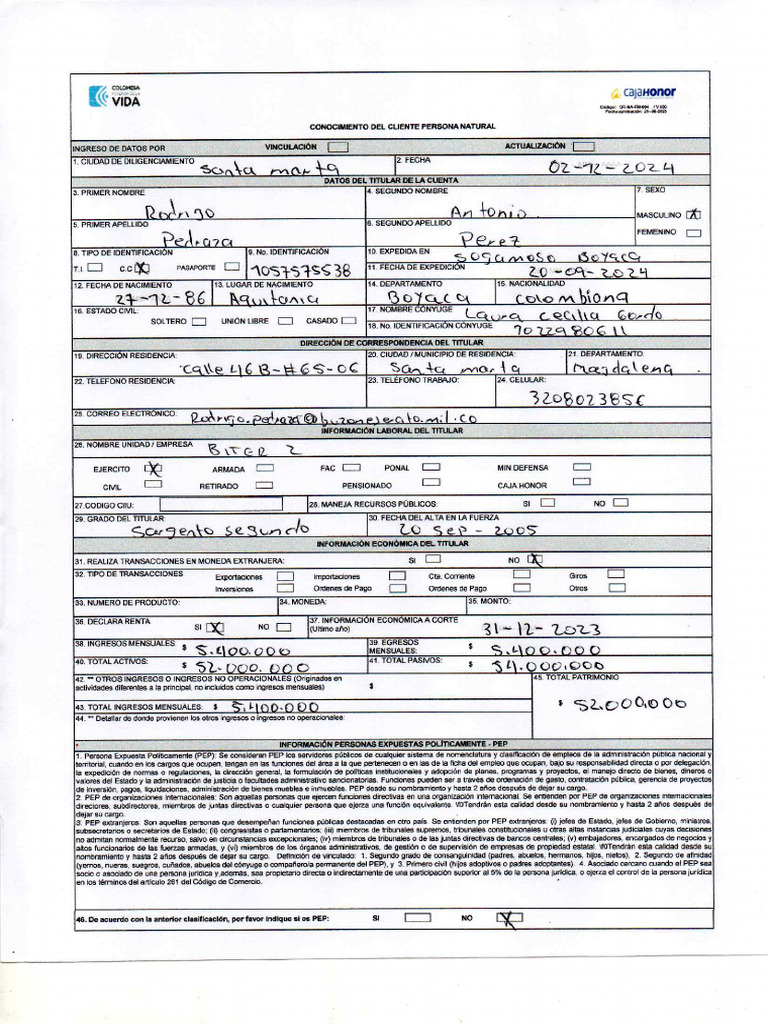 COLOMBIA
POTENCIA DE LA
VIDA
cajaHonor
CONOCIMIENTO DEL CLIENTE PERSONA NATURAL
INGRESO DE DATOS POR VINCULACIÓN ACTUALIZACIÓN
1. CIUDAD DE DILIGENCIAMIENTO Santa marta 2. FECHA 02-12-2024
DATOS DEL TITULAR DE LA CUENTA
3. PRIMER NOMBRE Rodrigo 4. SEGUNDO NOMBRE Antonio 7. SEXO
MASCULINO X
5. PRIMER APELLIDO Pedraza 6. SEGUNDO APELLIDO Perez
FEMENINO
8. TIPO DE IDENTIFICACIÓN 9. No. IDENTIFICACIÓN 10. EXPEDIDA EN Sogamoso Boyaca
T.I. C.C X PASAPORTE 1057575538 11. FECHA DE EXPEDICIÓN 20-09-2024
12. FECHA DE NACIMIENTO 13. LUGAR DE NACIMIENTO 14. DEPARTAMENTO 15. NACIONALIDAD
27-12-86 Aquitania Boyaca colombiana
16. ESTADO CIVIL: 17. NOMBRE CÓNYUGE Laura Cecilia Gordo
SOLTERO UNIÓN LIBRE CASADO 18. No. IDENTIFICACIÓN CÓNYUGE 1022980611
DIRECCIÓN DE CORRESPONDENCIA DEL TITULAR
19. DIRECCIÓN RESIDENCIA: 20. CIUDAD / MUNICIPIO DE RESIDENCIA: 21. DEPARTAMENTO:
calle 46B-#65-06 Santa marta Magdalena.
22. TELEFONO RESIDENCIA: 23. TELÉFONO TRABAJO: 24. CELULAR:
3208023856
25. CORREO ELECTRÓNICO: Rodrigo.pedraza@buzonejercito.mil.co
INFORMACIÓN LABORAL DEL TITULAR
26. NOMBRE UNIDAD / EMPRESA BITER 2
EJERCITO X ARMADA FAC PONAL MIN DEFENSA
CIVIL RETIRADO PENSIONADO CAJA HONOR
27.CODIGO CIIU: 28. MANEJA RECURSOS PÚBLICOS: SI NO
29. GRADO DEL TITULAR 30. FECHA DEL ALTA EN LA FUERZA
Sargento segundo 20 Sep - 2005
INFORMACIÓN ECONÓMICA DEL TITULAR
31. REALIZA TRANSACCIONES EN MONEDA EXTRANJERA: SI NO X
32. TIPO DE TRANSACCIONES Exportaciones Importaciones Cta. Corriente Giros
Inversiones Ordenes de Pago Ordenes de Pago Otros
33. NUMERO DE PRODUCTO: 34. MONEDA: 35. MONTO:
36. DECLARA RENTA SI X NO 37. INFORMACIÓN ECONÓMICA A CORTE
(Ultimo año) 31-12-2023
38. INGRESOS MENSUALES $ 5.400.000 39. EGRESOS MENSUALES: $ 5.400.000
40. TOTAL ACTIVOS: $ 52.000.000 41. TOTAL PASIVOS: $ 54.000.000
42. ** OTROS INGRESOS O INGRESOS NO OPERACIONALES (Originados en 45. TOTAL PATRIMONIO
actividades diferentes a la principal, no incluidos como ingresos mensuales) $
43. TOTAL INGRESOS MENSUALES: $ 5.400.000 $ 52.000.000
44. ** Detallar de donde provienen los otros ingresos o ingresos no operacionales:
INFORMACIÓN PERSONAS EXPUESTAS POLÍTICAMENTE - PEP
1. Persona Expuesta Políticamente (PEP): Se consideran PEP los servidores públicos de cualquier sistema de nomenclatura y clasificación de empleos de la administración pública nacional y
territorial, cuando en los cargos que ocupen, tengan en las funciones del área a la que pertenecen o en las de la ficha del empleo que ocupan, bajo su responsabilidad directa o por delegación,
la expedición de normas o regulaciones, la dirección general, la formulación de políticas institucionales y adopción de planes, programas y proyectos, el manejo directo de bienes, dineros o
valores del Estado y la administración de justicia o facultades administrativo sancionatorias. Funciones pueden ser a través de ordenación de gasto, contratación pública, gerencia de proyectos
de inversión, pagos, liquidaciones, administración de bienes muebles e inmuebles. PEP desde su nombramiento y hasta 2 años después de dejar su cargo.
2. PEP de organizaciones internacionales: Son aquellas personas que ejercen funciones directivas en una organización internacional. Se entienden por PEP de organizaciones internacionales
directores, subdirectores, miembros de juntas directivas o cualquier persona que ejerza una función equivalente. \/0Tendrán esta calidad desde su nombramiento y hasta 2 años después de
dejar su cargo.
3. PEP extranjeros: Son aquellas personas que desempeñan funciones públicas destacadas en otro país. Se entienden por PEP extranjeros: (i) jefes de Estado, jefes de Gobierno, ministros,
subsecretarios o secretarios de Estado; (ii) congresistas o parlamentarios; (iii) miembros de tribunales supremos, tribunales constitucionales u otras altas instancias judiciales cuyas decisiones
no admitan normalmente recurso, salvo en circunstancias excepcionales; (iv) miembros de tribunales o de las juntas directivas de bancos centrales; (v) embajadores, encargados de negocios y
altos funcionarios de las fuerzas armadas, y (vi) miembros de los órganos administrativos, de gestión o de supervisión de empresas de propiedad estatal. \/0Tendrán esta calidad desde su
nombramiento y hasta 2 años después de dejar su cargo. Definición de vinculado: 1. Segundo grado de consanguinidad (padres, abuelos, hermanos, hijos, nietos). 2. Segundo de afinidad
(yernos, nueras, suegros, cuñados, abuelos del cónyuge o compañero/a permanente del PEP), y 3. Primero civil (hijos adoptivos o padres adoptantes). 4. Asociado cercano cuando el PEP sea
socio o asociado de una persona jurídica y,además, sea propietario directa o indirectamente de una participación superior al 5% de la persona jurídica, o ejerza el control de la persona jurídica
en los términos del artículo 261 del Código de Comercio.
46. De acuerdo con la anterior clasificación, por favor indique si es PEP: SI NO X